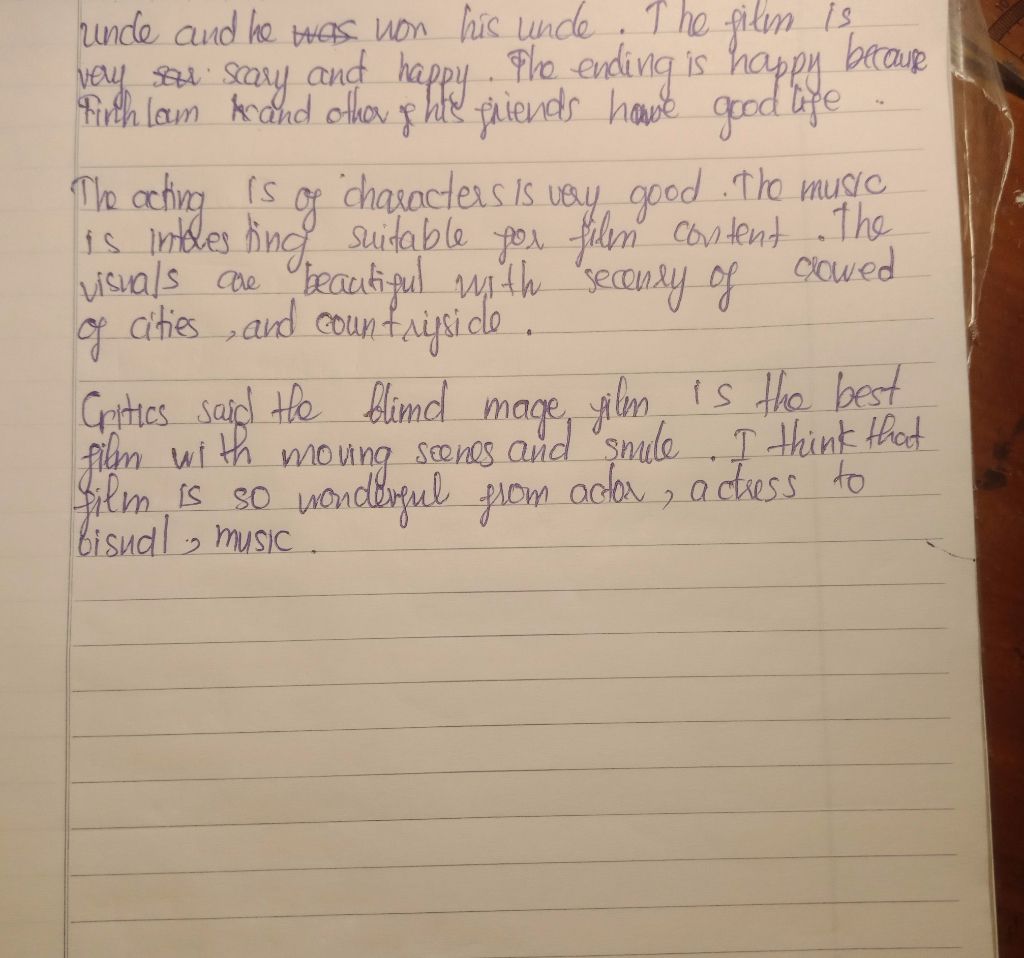 uncle and he was won his uncle . The film is
very scary and happy . The ending is happy because
Firth lam and other of his friends have good life .
The acting is of characters is very good . The music
is interesting suitable for film content . The
visuals are beautiful with secenry of crowed
of cities , and countryside .
Critics said the blimd mage film is the best
film with moving scenes and smile . I think that
film is so wonderful from actor , actress to
bisual , music .